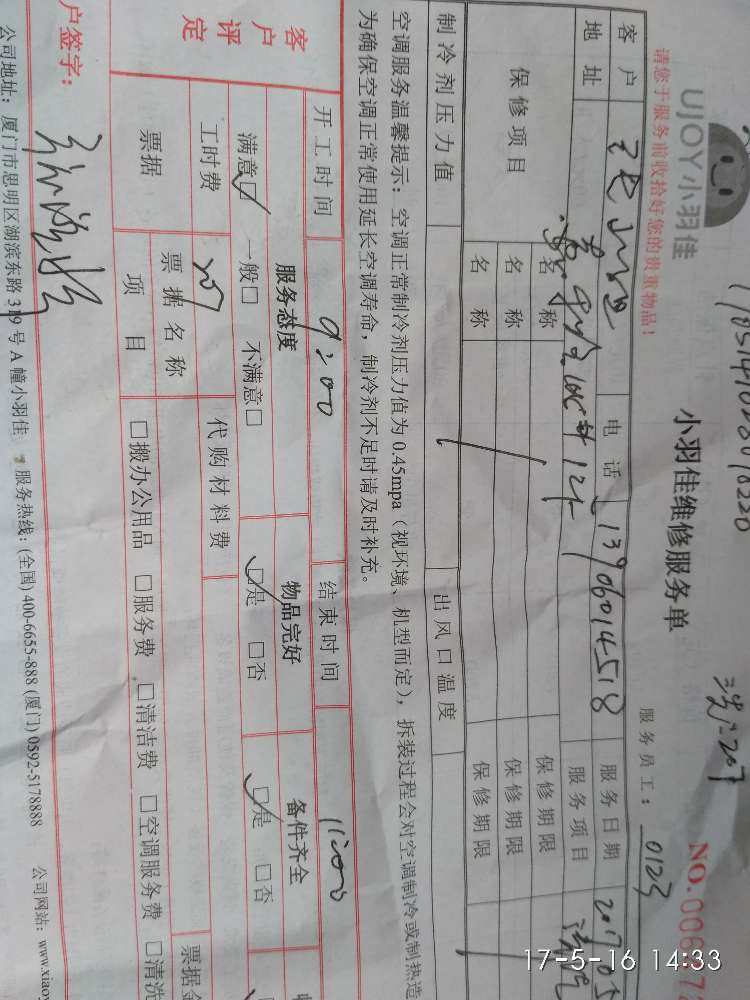 UJOY小羽佳
请您于服务前收拾好您的贵重物品!
小羽佳维修服务单
服务员工: 0123
NO.006
客户 电话 13906014518 服务日期 2017 05
地址 服务项目
保修项目 名称 保修期限
名称 保修期限
名称 保修期限
制冷剂压力值 出风口温度
空调服务温馨提示: 空调正常制冷剂压力值为0.45mpa (视环境、机型而定), 拆装过程会对空调制冷或制热造
为确保空调正常使用延长空调寿命, 制冷剂不足时请及时补充。
开工时间 9:00 结束时间 11:00
客户评定 服务态度 物品完好 备件齐全
满意□ 一般□ 不满意□ □是 □否 □是 □否
工时费 207 代购材料费
票据 票据名称 票据金
项目 □搬办公用品 □服务费 □清洁费 □空调服务费 □清洗
户签字:
公司地址: 厦门市思明区湖滨东路319号A幢小羽佳 服务热线: (全国) 400-6655-888 (厦门) 0592-5178888 公司网站: www.xiaoy
17-5-16 14:33